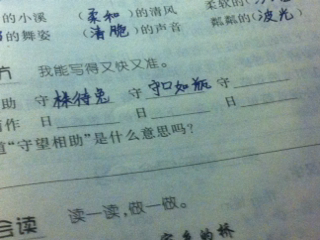 的小溪 （柔和）的清风 柔软的
的舞姿 （清脆）的声音 粼粼的（波光）
方 我能写得又快又准。
助 守株待兔 守口如瓶 守
作 日 日
道“守望相助”是什么意思吗？
会读 读一读，做一做。
家乡的桥